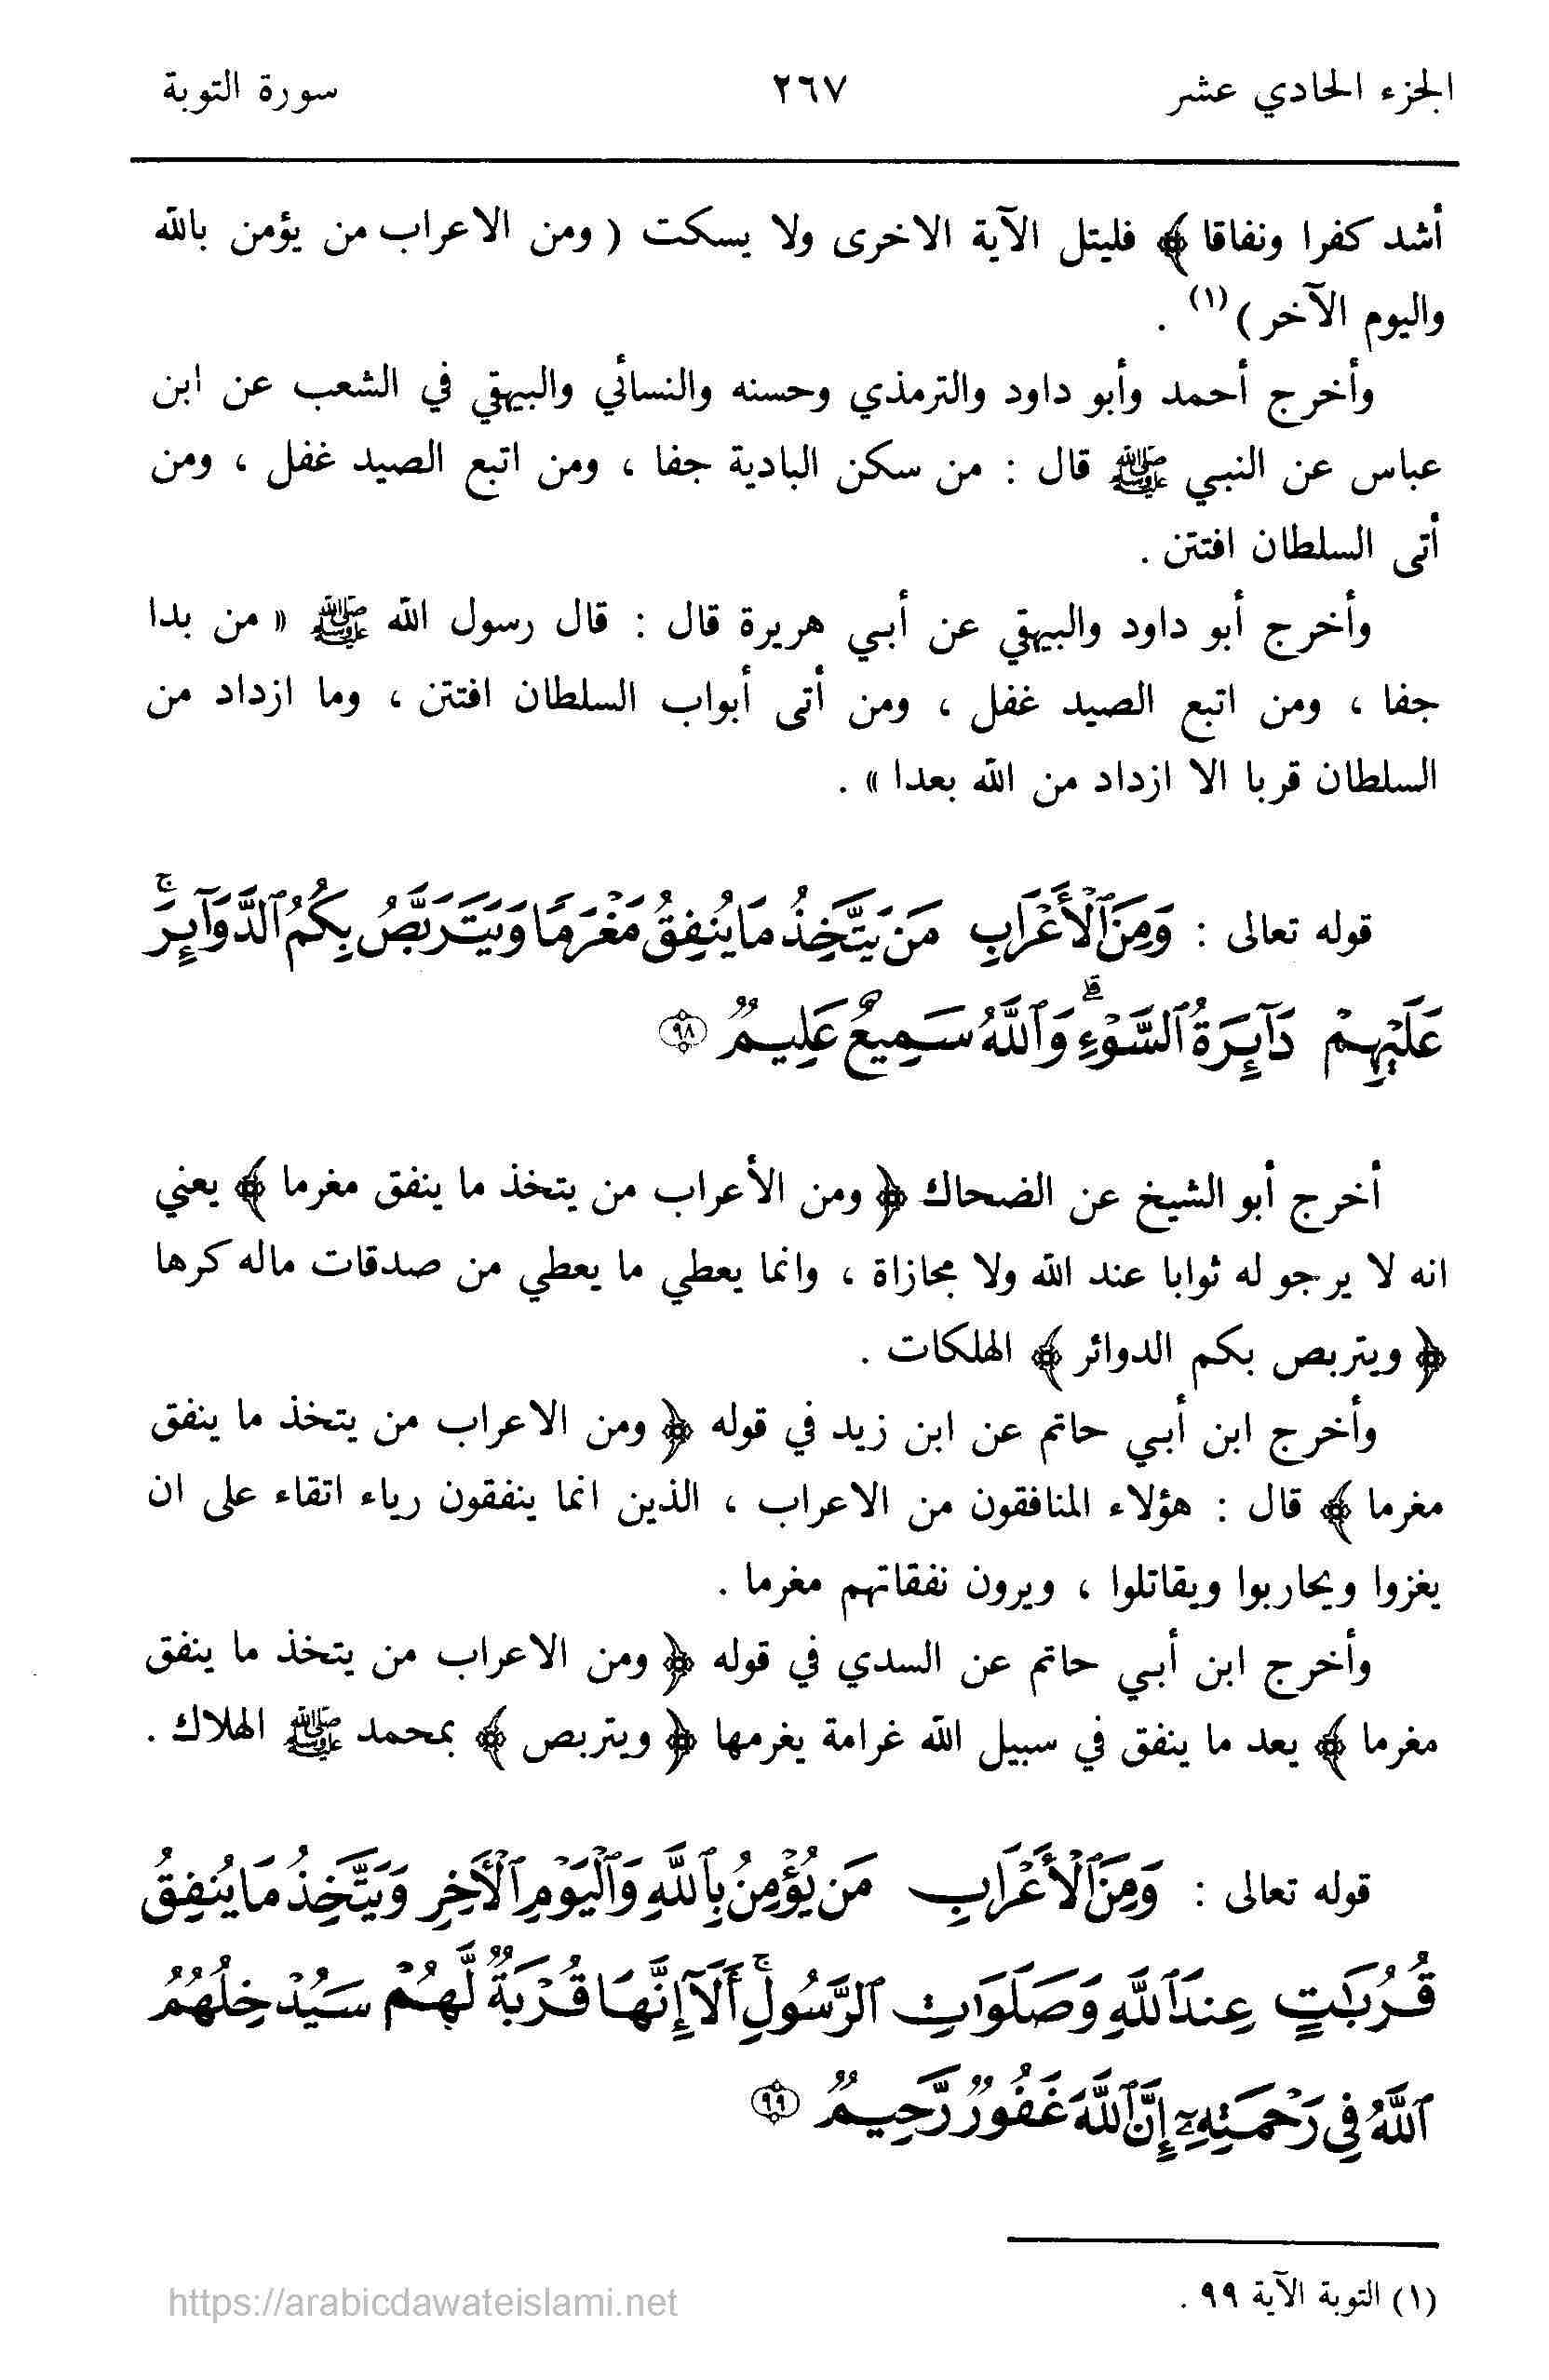 الجزء الحادي عشر ٢٦٧ سورة التوبة
أشد كفرا ونفاقا ﴾ فليتل الآية الاخرى ولا يسكت ( ومن الاعراب من يؤمن بالله
واليوم الآخر )(١) .
وأخرج أحمد وأبو داود والترمذي وحسنه والنسائي والبيهقي في الشعب عن ابن
عباس عن النبي ﷺ قال : من سكن البادية جفا ، ومن اتبع الصيد غفل ، ومن
أتى السلطان افتتن .
وأخرج أبو داود والبيهقي عن أبي هريرة قال : قال رسول الله ﷺ « من بدا
جفا ، ومن اتبع الصيد غفل ، ومن أتى أبواب السلطان افتتن ، وما ازداد من
السلطان قربا الا ازداد من الله بعدا » .
قوله تعالى : وَمِنَ ٱلْأَعْرَابِ مَن يَتَّخِذُ مَا يُنفِقُ مَغْرَمًا وَيَتَرَبَّصُ بِكُمُ ٱلدَّوَآئِرَۚ
عَلَيْهِمْ دَآئِرَةُ ٱلسَّوْءِۗ وَٱللَّهُ سَمِيعٌ عَلِيمٌ ٩٨
أخرج أبو الشيخ عن الضحاك ﴿ ومن الأعراب من يتخذ ما ينفق مغرما ﴾ يعني
انه لا يرجو له ثوابا عند الله ولا مجازاة ، وانما يعطي ما يعطي من صدقات ماله كرها
﴿ ويتربص بكم الدوائر ﴾ الهلكات .
وأخرج ابن أبي حاتم عن ابن زيد في قوله ﴿ ومن الاعراب من يتخذ ما ينفق
مغرما ﴾ قال : هؤلاء المنافقون من الاعراب ، الذين انما ينفقون رياء اتقاء على ان
يغزوا ويحاربوا ويقاتلوا ، ويرون نفقاتهم مغرما .
وأخرج ابن أبي حاتم عن السدي في قوله ﴿ ومن الاعراب من يتخذ ما ينفق
مغرما ﴾ يعد ما ينفق في سبيل الله غرامة يغرمها ﴿ ويتربص ﴾ بمحمد ﷺ الهلاك .
قوله تعالى : وَمِنَ ٱلْأَعْرَابِ مَن يُؤْمِنُ بِٱللَّهِ وَٱلْيَوْمِ ٱلْأَخِرِ وَيَتَّخِذُ مَا يُنفِقُ
قُرُبَٰتٍ عِندَ ٱللَّهِ وَصَلَوَٰتِ ٱلرَّسُولِۚ أَلَآ إِنَّهَا قُرْبَةٌ لَّهُمْ سَيُدْخِلُهُمُ
ٱللَّهُ فِى رَحْمَتِهِۦٓ إِنَّ ٱللَّهَ غَفُورٌ رَّحِيمٌ ٩٩
(١) التوبة الآية ٩٩ .
https://arabicdawateislami.net